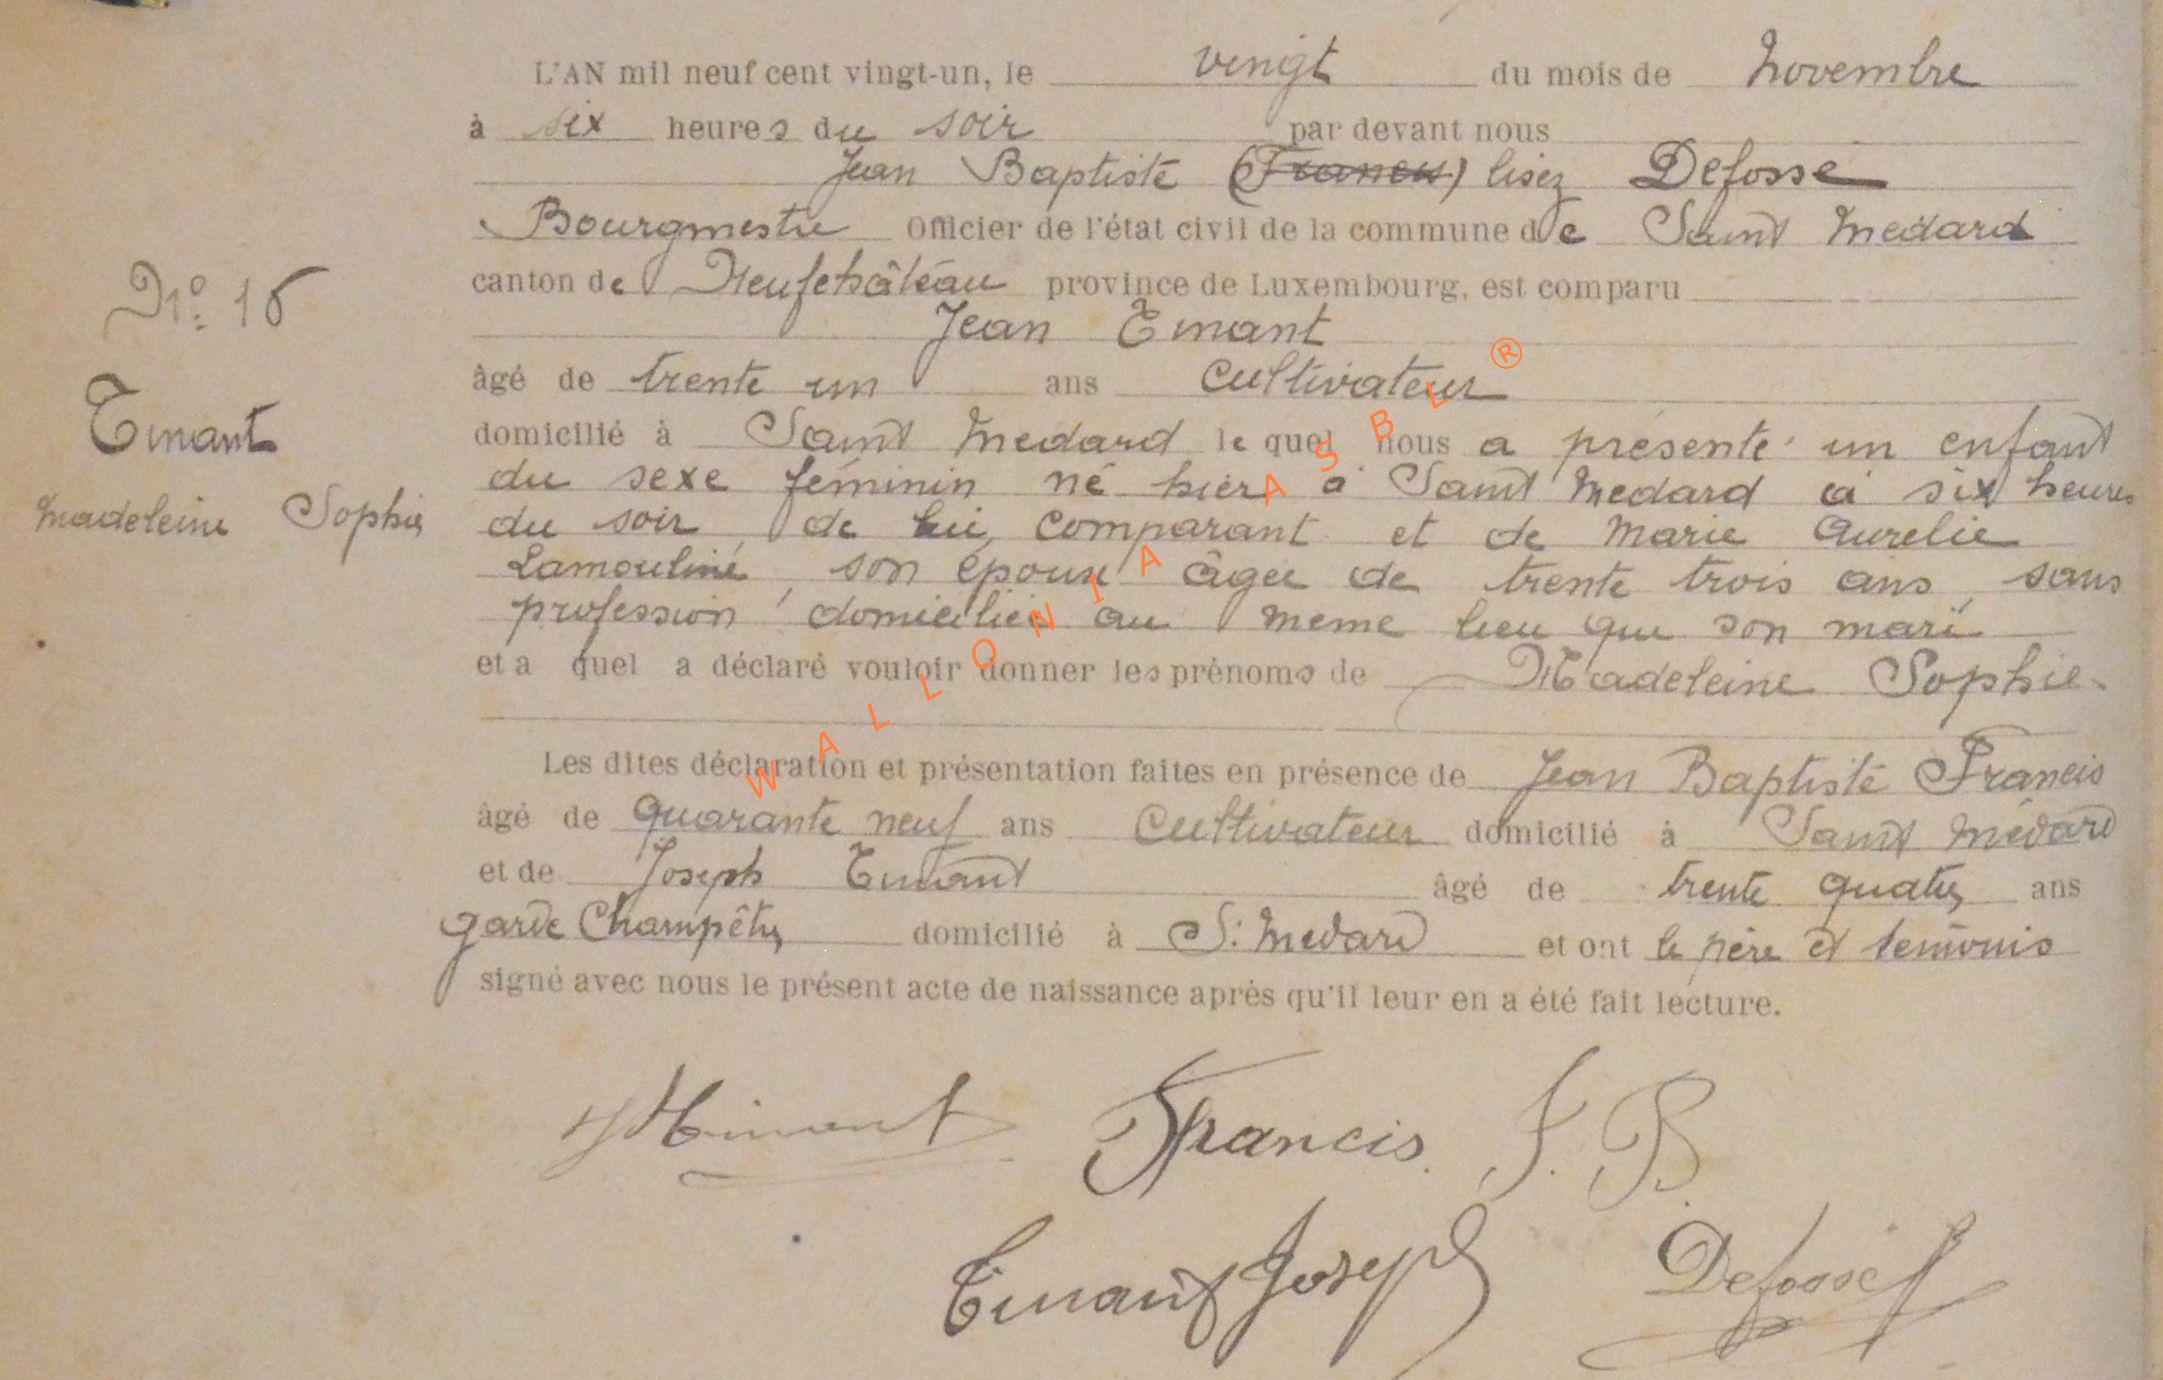 L'AN mil neuf cent vingt-un, le vingt du mois de Novembre
à six heures du soir par devant nous
Jean Baptiste (Francis) lisez Defosse
Bourgmestre Officier de l'état civil de la commune de Saint Medard
canton de Neufchâteau province de Luxembourg, est comparu
Jean Tinant
âgé de trente un ans cultivateur
domicilié à Saint Medard le quel nous a présenté un enfant
du sexe féminin né hier à Saint Medard à six heures
du soir, de lui, comparant et de Marie Aurelie
Lamouline, son épouse âgée de trente trois ans, sans
profession, domiciliée au meme lieu que son mari
et a quel a déclaré vouloir donner les prénoms de Madeleine Sophie
Les dites déclaration et présentation faites en présence de Jean Baptiste Francis
âgé de quarante neuf ans Cultivateur domicilié à Saint Médard
et de Joseph Tinant âgé de trente quatre ans
garde Champêtre domicilié à S. Medard et ont le père et temoins
signé avec nous le présent acte de naissance après qu'il leur en a été fait lecture.
No. 16
Tinant
Madeleine Sophie
Tinant Francis. J. B.
Tinant Joseph Defosse
WALLONIA ASBL ®